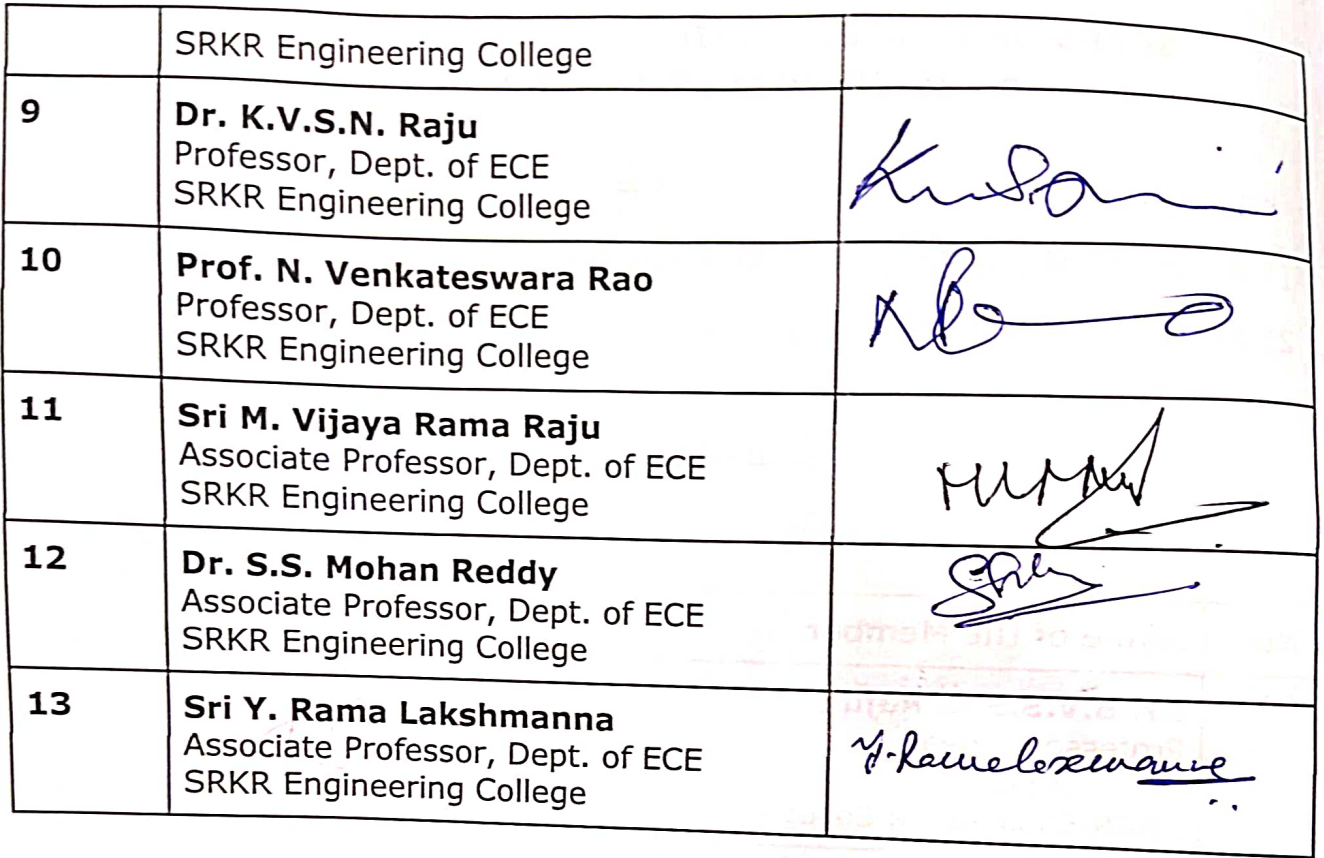 SRKR Engineering College
9
Dr. K.V.S.N. Raju
Professor, Dept. of ECE
SRKR Engineering College
10
Prof. N. Venkateswara Rao
Professor, Dept. of ECE
SRKR Engineering College
11
Sri M. Vijaya Rama Raju
Associate Professor, Dept. of ECE
SRKR Engineering College
12
Dr. S.S. Mohan Reddy
Associate Professor, Dept. of ECE
SRKR Engineering College
13
Sri Y. Rama Lakshmanna
Associate Professor, Dept. of ECE
SRKR Engineering College